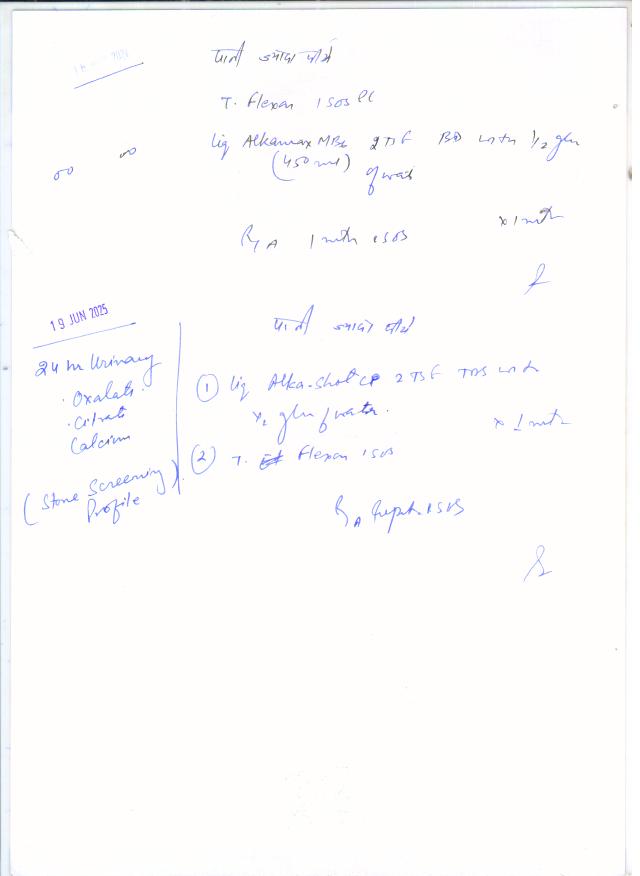 पानी ज्यादा पीयें
T. Flexon 1 SOS PC
liq Alkamax MB6 2 TSF BD with 1/2 glu
(450 ml) of wat
R/A 1 mth / SOS
x 1 mth
19 JUN 2025
24 hr Urinary
. Oxalate.
. Citrate
Calcium
(Stone Screening
Profile)
पानी ज्यादा पीयें
① liq Alka-Shot CP 2 TSF TDS with
½ glu of water.
x 1 mth
② T. Flexon 1 SOS
R/A Report / SOS